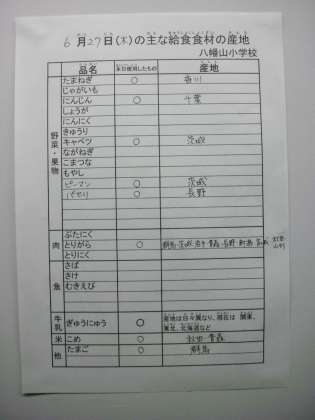 6月27日(木)の主な給食食材の産地
八幡山小学校
品名 本日使用したもの 産地
野菜・果物
たまねぎ ○ 香川
じゃがいも
にんじん ○ 千葉
しょうが
にんにく
きゅうり
キャベツ ○ 茨城
ながねぎ
こまつな
もやし
ピーマン ○ 茨城
パセリ ○ 長野
肉
ぶたにく
とりがら ○
とりにく
魚
さば
さけ
むきえび
牛乳 ぎゅうにゅう ○ 産地は日々異なり、現在は 関東、
東北、北海道など
米 こめ ○ 秋田 青森
他 たまご ○ 群馬